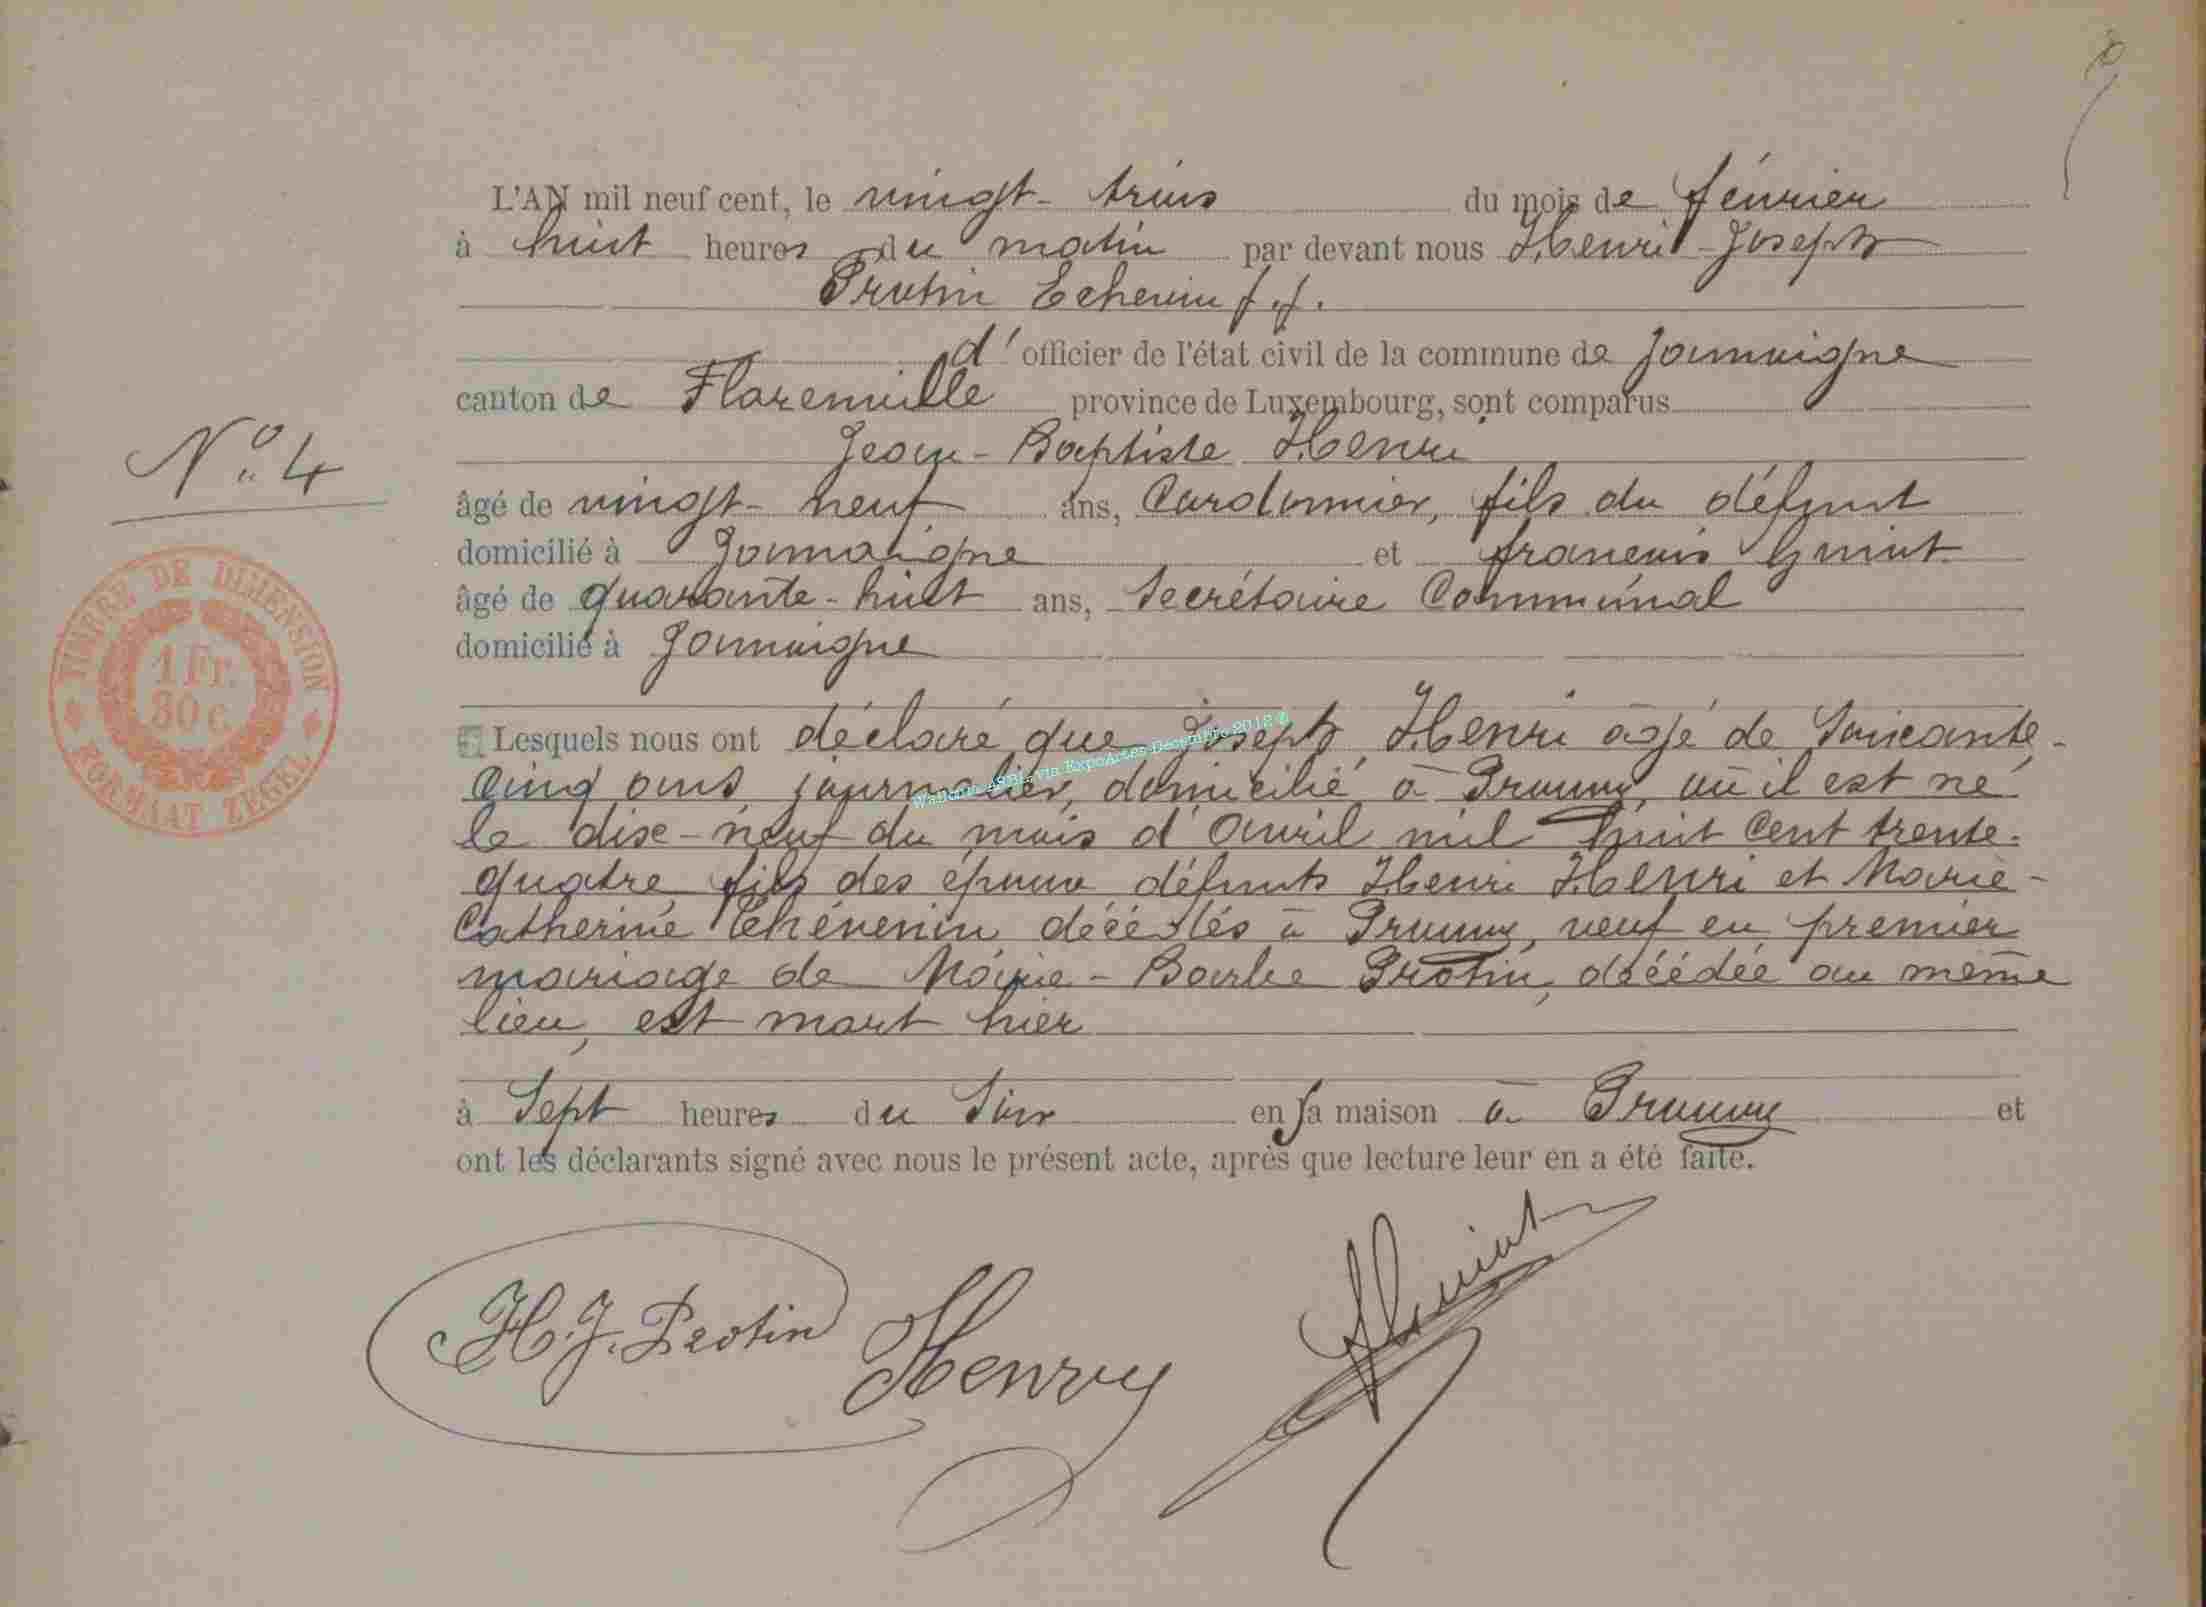 L'AN mil neuf cent, le vingt-trois du mois de février
à huit heures du matin par devant nous Henri-Joseph
Protin Echevin f.f.
d'officier de l'état civil de la commune de Jamoigne
canton de Florenville province de Luxembourg, sont comparus
Jean-Baptiste Henri
N° 4
âgé de vingt-neuf ans, Cordonnier, fils du défunt
domicilié à Jamoigne et françois Guiot
âgé de quarante-huit ans, Secrétaire Communal
domicilié à Jamoigne
TIMBRE DE DIMENSION
1 Fr.
30 c.
FORMAAT ZEGEL
Lesquels nous ont déclaré que Joseph Henri âgé de Soixante-
Cinq ans, journalier, domicilié à Prouvy, où il est né
le dix-neuf du mois d'Avril mil huit Cent trente-
quatre, fils des époux défunts Henri Henri et Marie-
Catherine Thévenin, décédés à Prouvy, veuf en premier
mariage de Marie-Barbe Protin, décédée au même
lieu, est mort hier
à Sept heures du Soir en Sa maison à Prouvy et
ont les déclarants signé avec nous le présent acte, après que lecture leur en a été faite.
H. J. Protin Henry